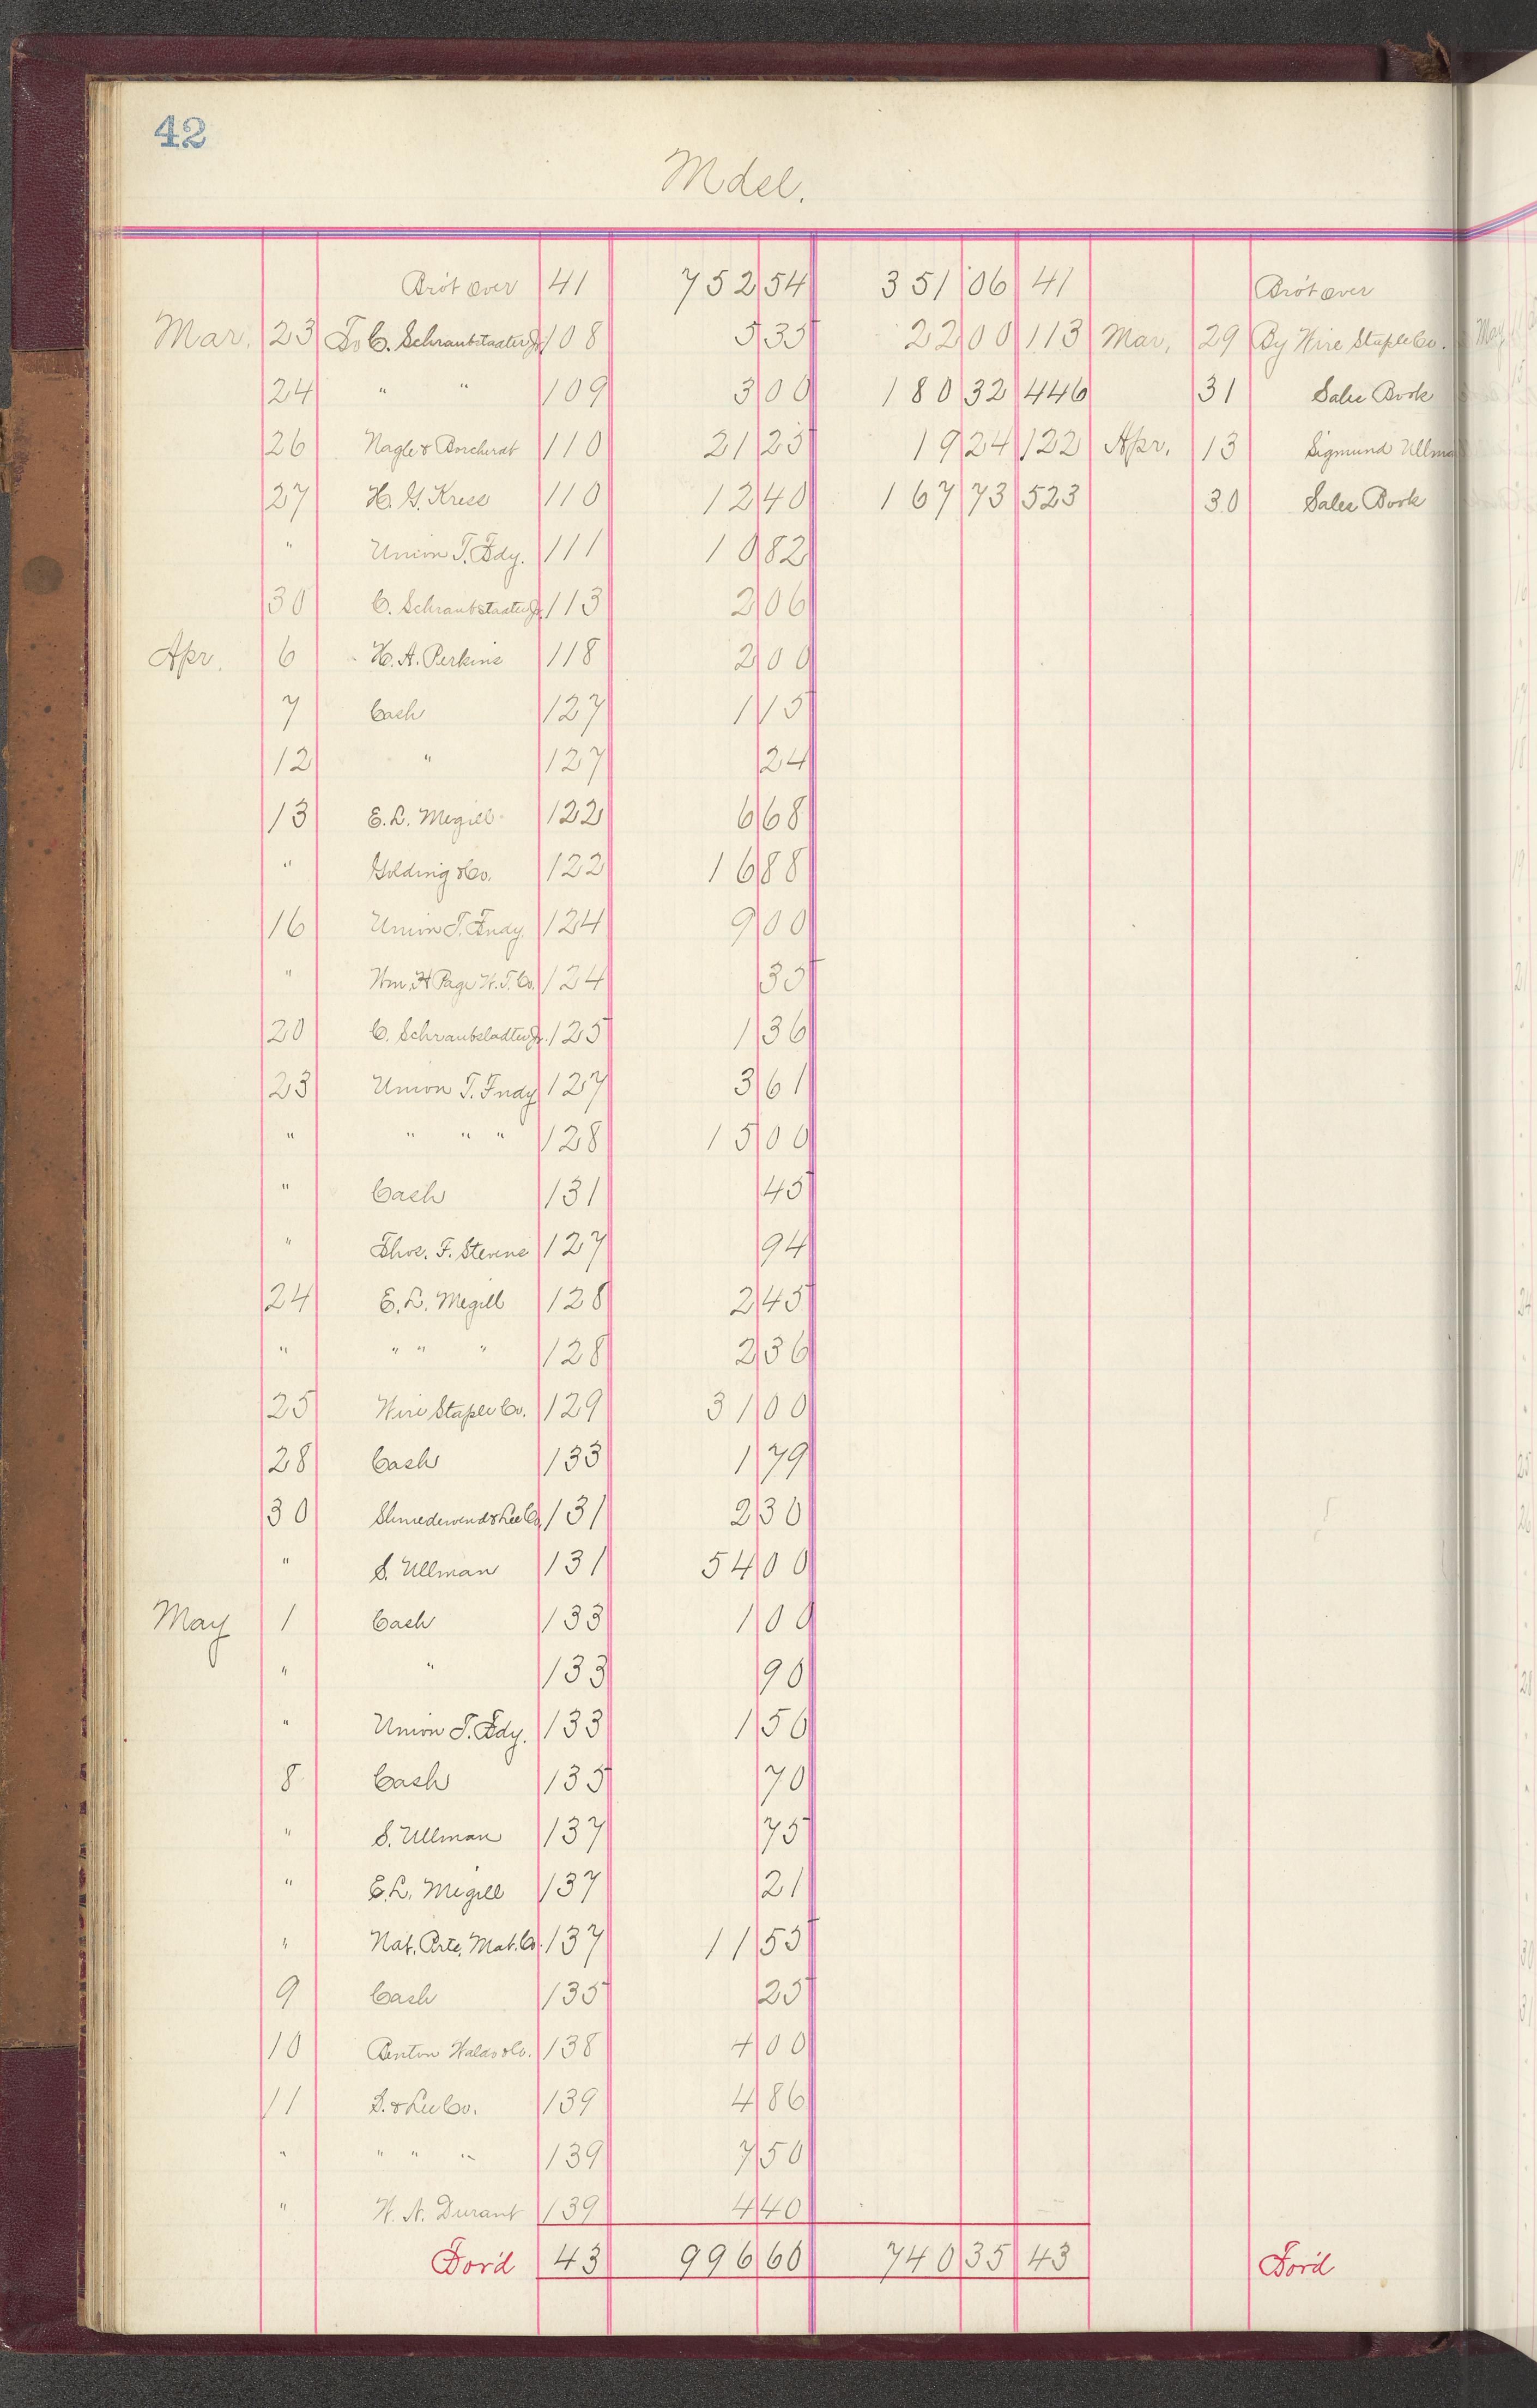 42
Mdse.
Bro't over 41 752 54 351 06 41 Bro't over
Mar. 23 To C. Schraubstadter Jr 108 5 35 22 00 113 Mar. 29 By Wire Staple Co.
24 " " 109 3 00 180 32 446 31 Sales Book
26 Nagle & Borcherdt 110 21 25 19 24 122 Apr. 13 Sigmund Ullma
27 H. G. Kress 110 12 40 167 73 523 30 Sales Book
" Union T. Fdy. 111 10 82
30 C. Schraubstadter Jr 113 2 06
Apr. 6 H. A. Perkins 118 2 00
7 Cash 127 1 15
12 " 127 24
13 E. L. Megill 122 6 68
" Golding & Co. 122 16 88
16 Union T. Fndy. 124 9 00
" Wm. H Page W. T. Co. 124 35
20 C. Schraubstadter Jr. 125 1 36
23 Union T. Fndy 127 3 61
" " " " 128 15 00
" Cash 131 45
" Thos. F. Stevens 127 94
24 E. L. Megill 128 2 45
" " " " 128 2 36
25 Wire Staple Co. 129 31 00
28 Cash 133 1 79
30 Shniedewend & Lee Co. 131 2 30
" S. Ullman 131 54 00
May 1 Cash 133 1 00
" " 133 90
" Union T. Fdy. 133 1 56
8 Cash 135 70
" S. Ullman 137 75
" E. L. Megill 137 21
" Nat. Prtg. Mat. Co. 137 11 55
9 Cash 135 25
10 Benton Waldo & Co. 138 4 00
11 S. & Lee Co. 139 4 86
" " " " 139 7 50
" W. A. Durant 139 4 40
For'd 43 996 60 740 35 43 For'd